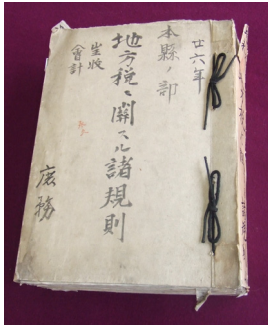 廿六年
本縣ノ部
地方税ニ関スル諸規則
会計
庶務